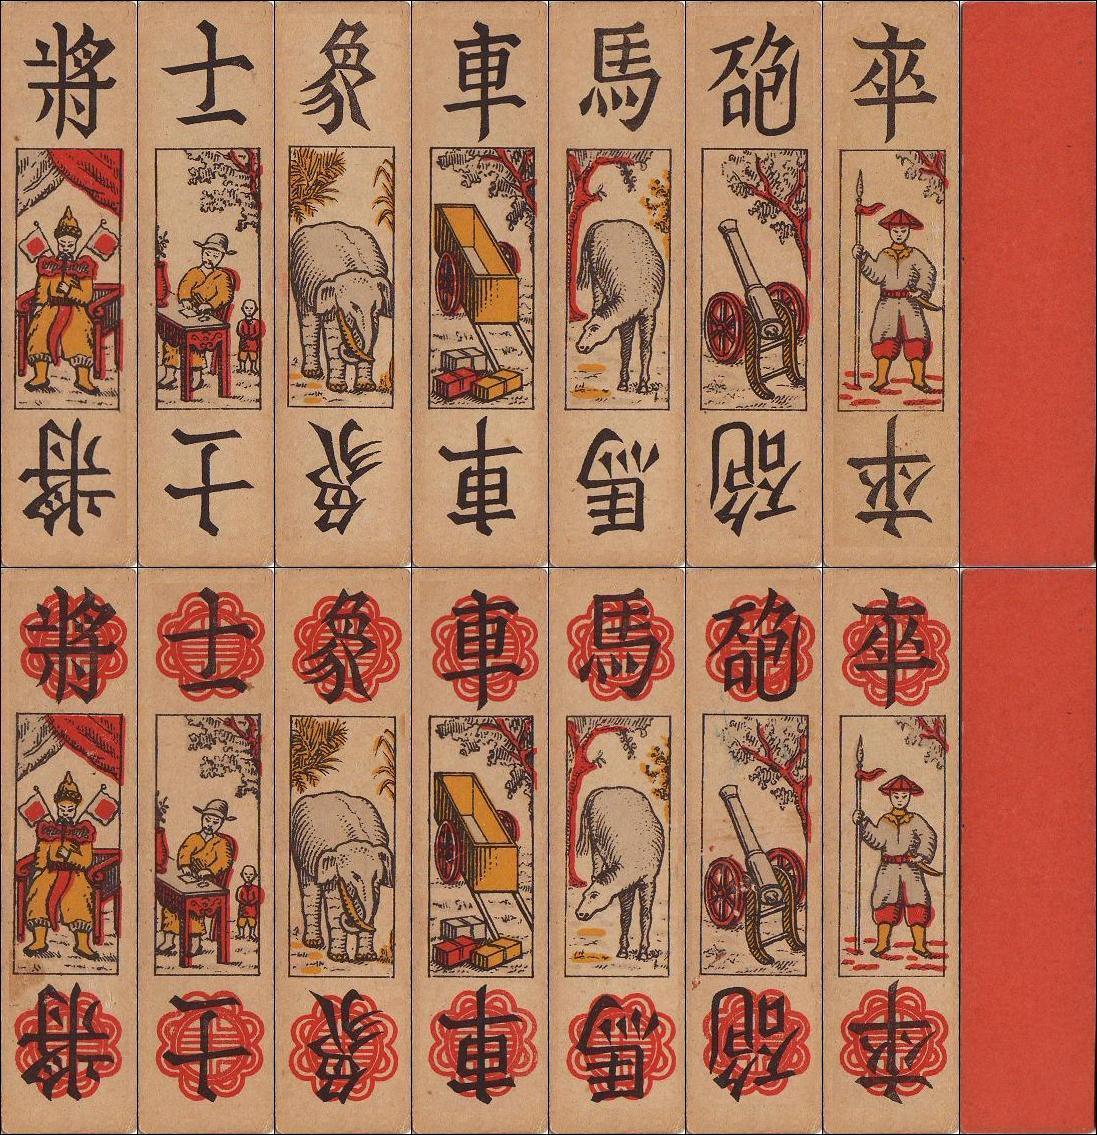 將 士 象 車 馬 砲 卒
將 士 象 車 馬 砲 卒
將 士 象 車 馬 砲 卒
將 士 象 車 馬 砲 卒